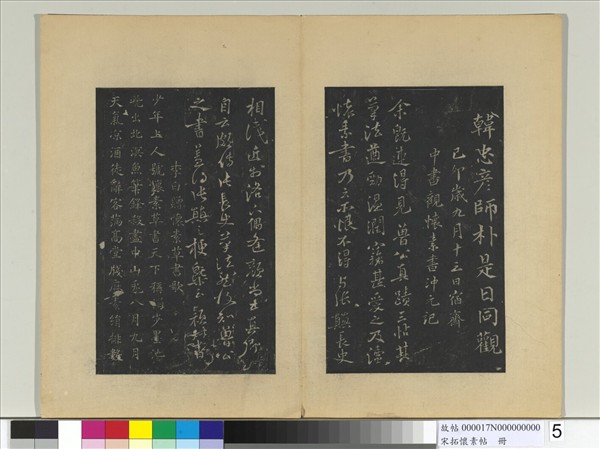 韓忠彥師朴是日同觀
己卯歲九月十三日宿齋
中書觀懷素書沖元記
余既遂得見魯公真蹟三帖其
筆法遒勁溫潤竊甚愛之乃讀
懷素書乃云亦恨不得與張顛長史
相識近於洛下偶逢顏尚書真卿
自云頗傳張長史筆法
之書
李白贈懷素草書歌
少年上人號懷素草書天下稱獨步墨池
飛出北溟魚筆鋒殺盡中山兔八月九月
天氣涼酒徒辭客滿高堂牋麻素絹排數
故帖 000017N000000000
宋拓懷素帖 冊
5